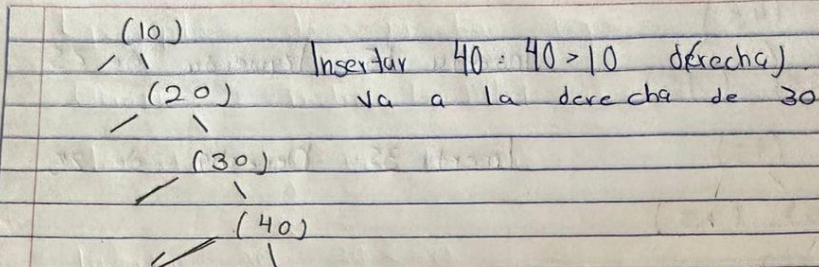 (10)
Insertar 40: 40>10 derecha)
(20) va a la derecha de 30
(30)
(40)